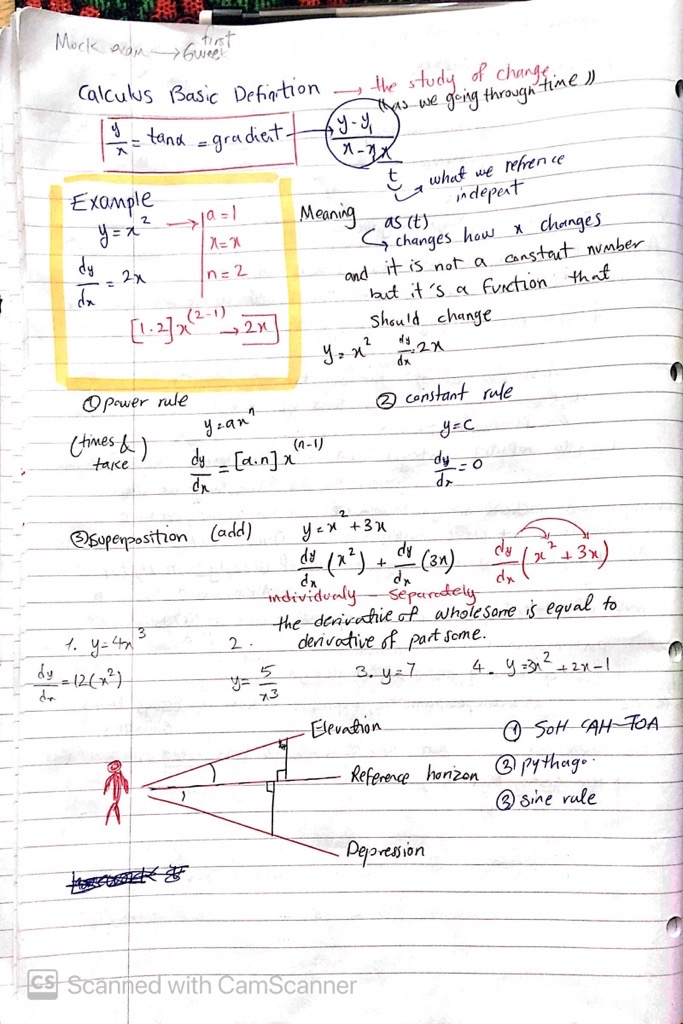 Mock exam → first 6 week
Calculus Basic Definition → the study of change
"as we going through time"
y/x = tanα = gradient → y-y₁/x-x₁
t
what we refrence
indepent
Example
y = x²
a = 1
x = x
n = 2
dy/dx = 2x
[1.2]x^(2-1) → 2x
Meaning as (t)
changes how x changes
and it is not a constant number
but it's a function that
should change
y = x² dy/dx = 2x
① power rule
(times & take)
y = axⁿ
dy/dx = [a.n] x^(n-1)
② constant rule
y = c
dy/dx = 0
③ superposition (add) y = x² + 3x
dy/dx (x²) + dy/dx (3x) dy/dx (x² + 3x)
individualy separately
the derivative of wholesome is equal to
derivative of part some.
1. y = 4x³
dy/dx = 12(x²)
2. y = 5/x3
3. y = 7
4. y = 3x² + 2x - 1
Elevation
Reference horizon
Depression
① SOH CAH TOA
② pythago.
③ sine rule
CS Scanned with CamScanner